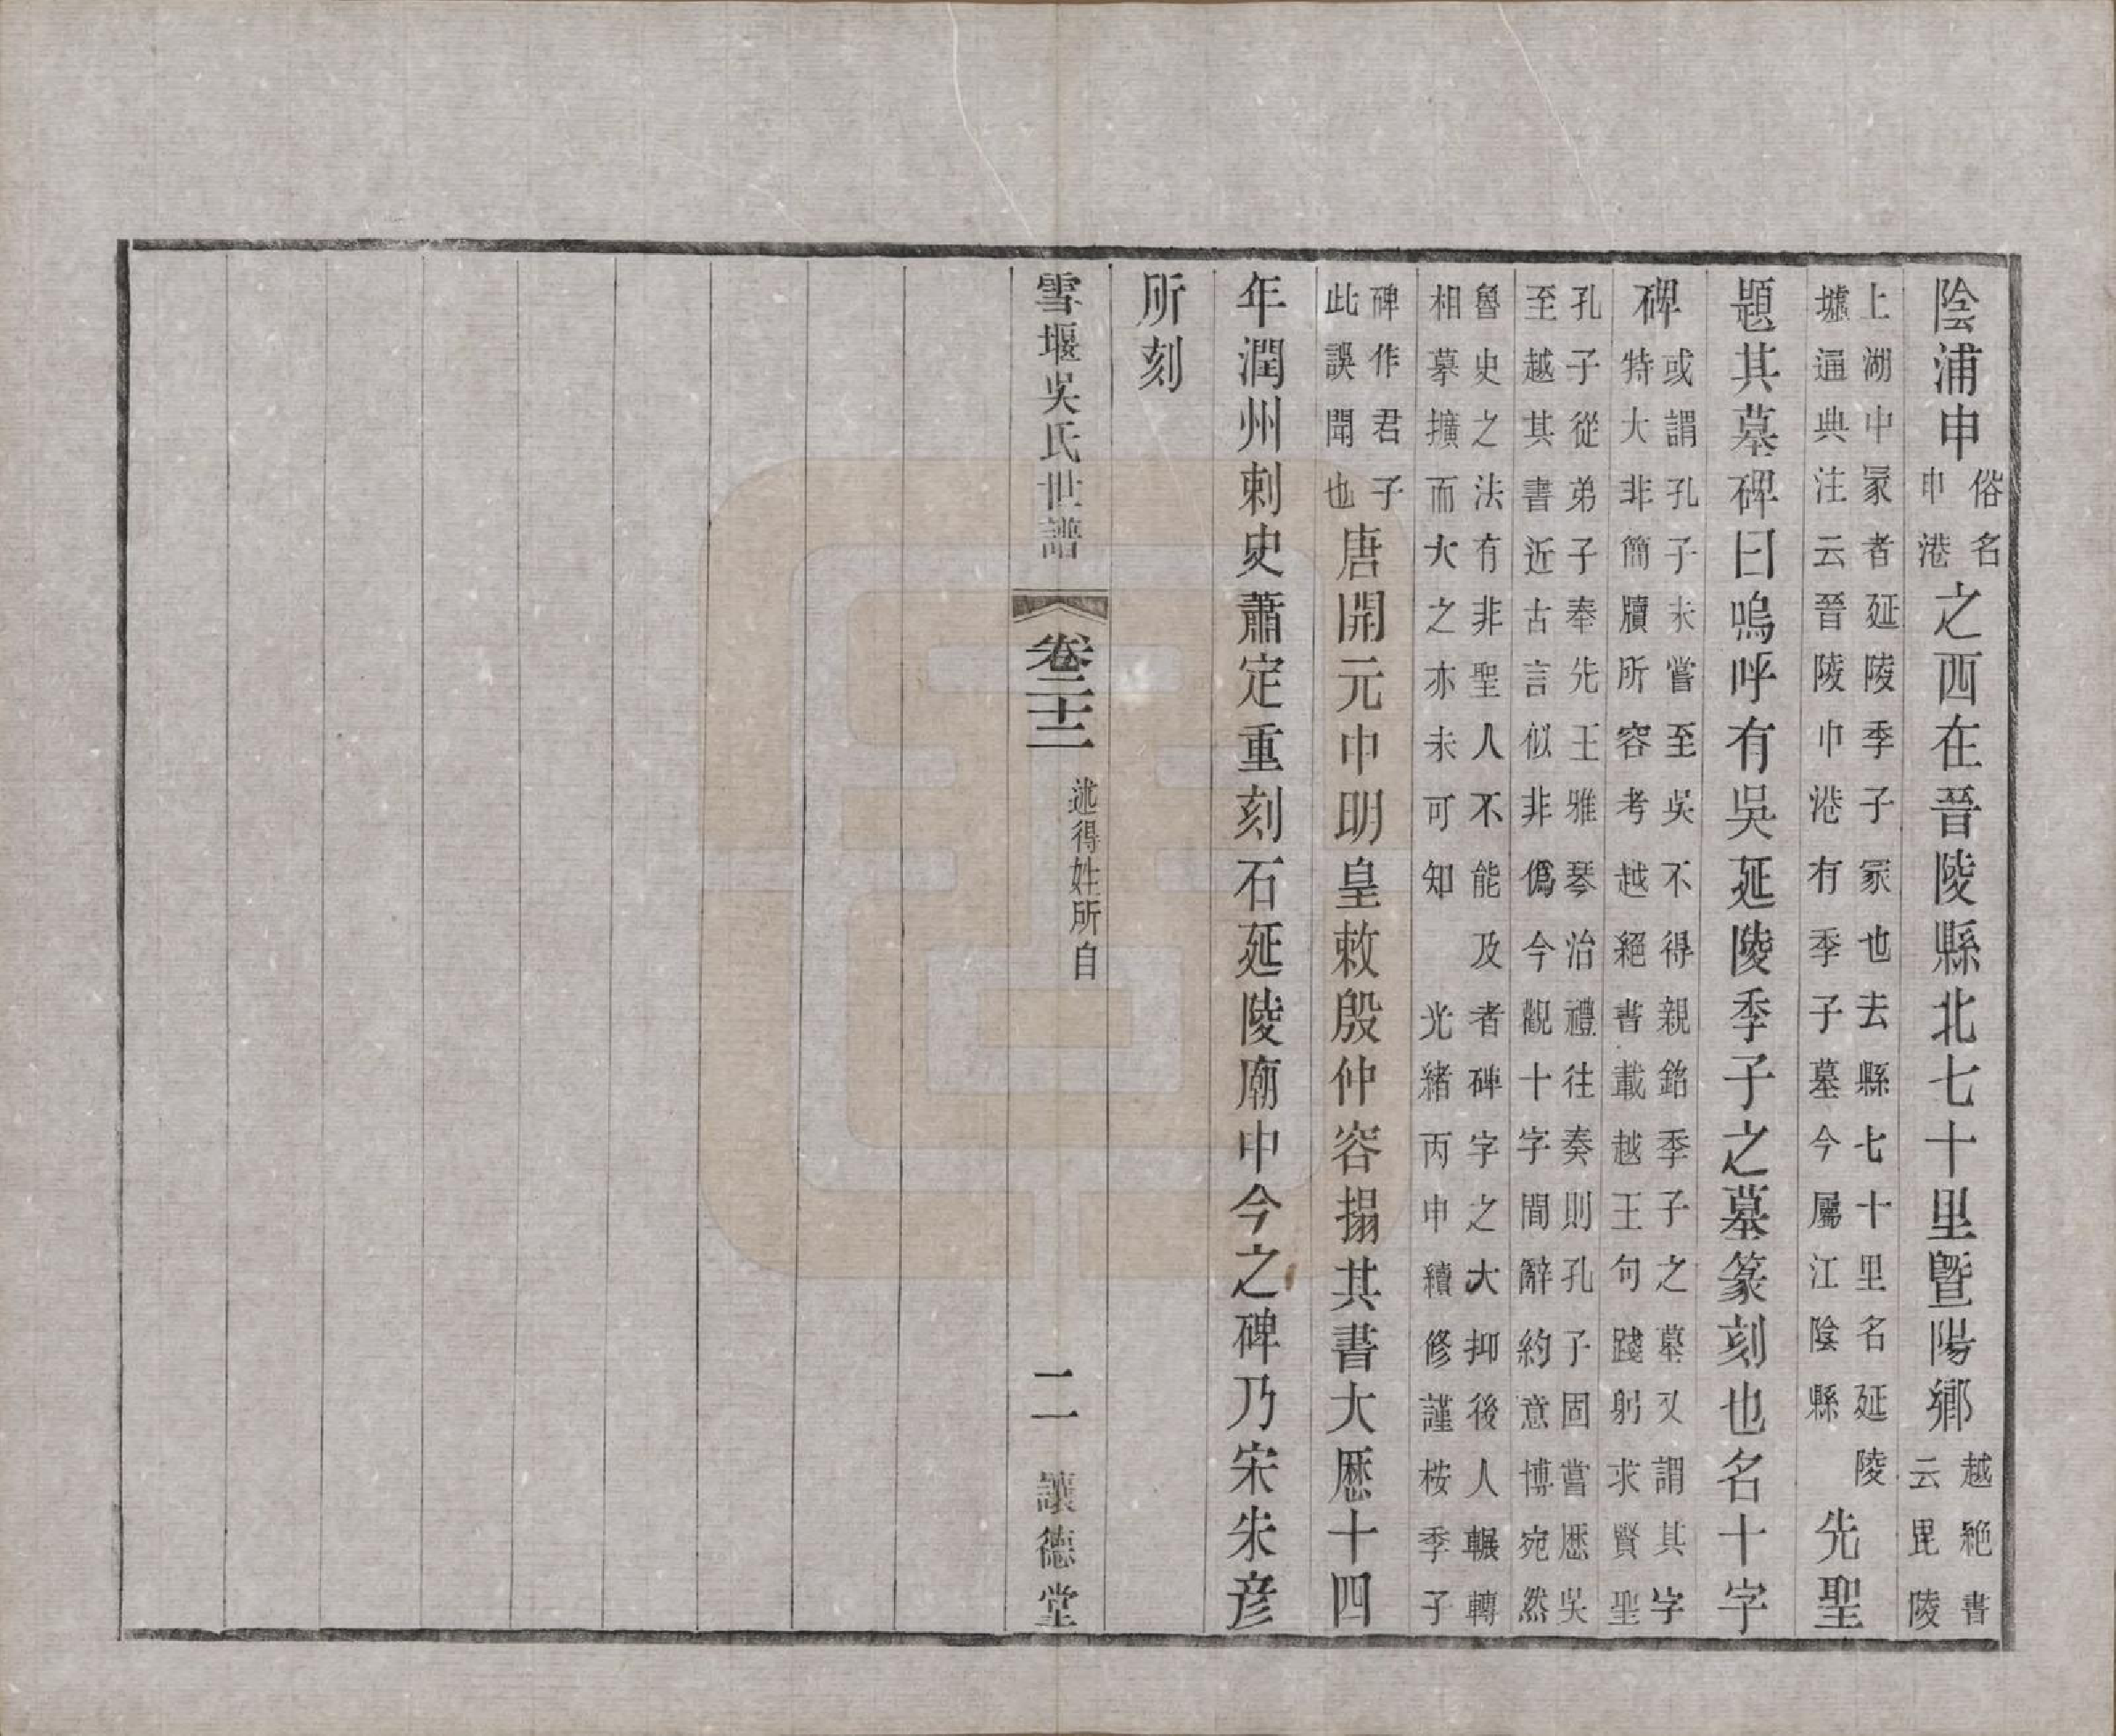 陰浦申俗名申港之西在晉陵縣北七十里暨陽鄉越絕書云毘陵
上湖中冢者延陵季子冢也去縣七十里名延陵墟通典注云晉陵巾港有季子墓今屬江陰縣先聖
題其墓碑曰嗚呼有吳延陵季子之墓篆刻也名十字
碑或謂孔子未嘗至吳不得親銘季子之墓又謂其字特大非簡牘所容考越絕書載越王句踐躬求賢聖
孔子從弟子奉先王雅琴治禮往奏則孔子固嘗歷吳至越其書近古言似非僞今觀十字間辭約意博宛然
魯史之法有非聖人不能及者碑字之大抑後人輾轉相摹擴而大之亦未可知光緒丙申續修謹桉季子
碑作君子此誤聞也唐開元中明皇敕殷仲容搨其書大厯十四
年潤州刺史蕭定重刻石延陵廟中今之碑乃宋朱彥
所刻
雪堰吳氏世譜
卷二十二
述得姓所自
二
讓德堂